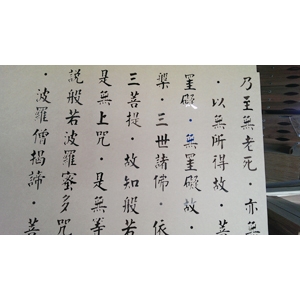 乃至無老死・亦無
・以無所得故・菩
罣礙・無罣礙故・
槃・三世諸佛・依
三菩提・故知般若
是無上咒・是無等
說般若波羅蜜多咒
・波羅僧揭諦・菩